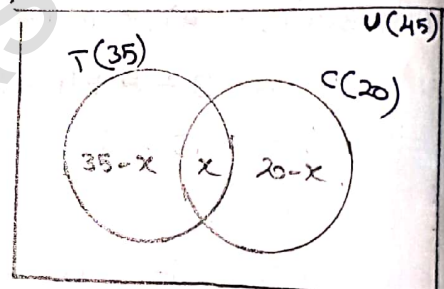 U(45)
T(35)
C(20)
35-x
x
20-x